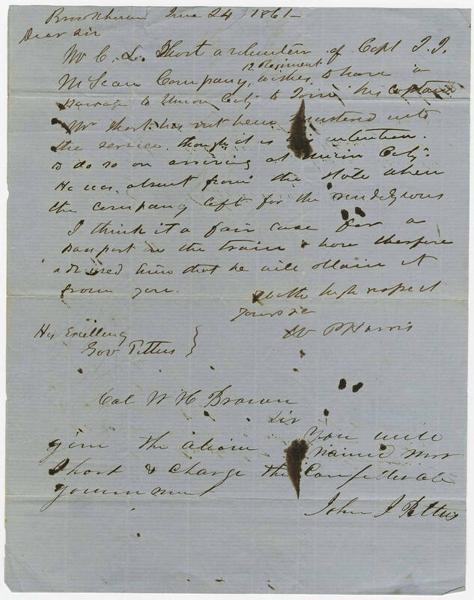 Brookhaven June 24 1861
Dear Sir
Mr C. L. Short a volunteer of Capt J. J.
12 Regiment
McLean Company, wishes to have a
passage to Union City to Join his captain
Mr Short has not been mustered into
the service, though it is intention
to do so on arriving at Union City.
He was absent from the State when
the company left for the rendezvous
I think it a fair case for a
passport on the train & have therefore
advised him that he will obtain it
from you.
With high respect
Yours &c
W P Harris
His Excellency
Gov Pettus }
Col W H Brown
Sir
You will
give the above named Mr
Short & charge the Confederate
Government
John J Pettus